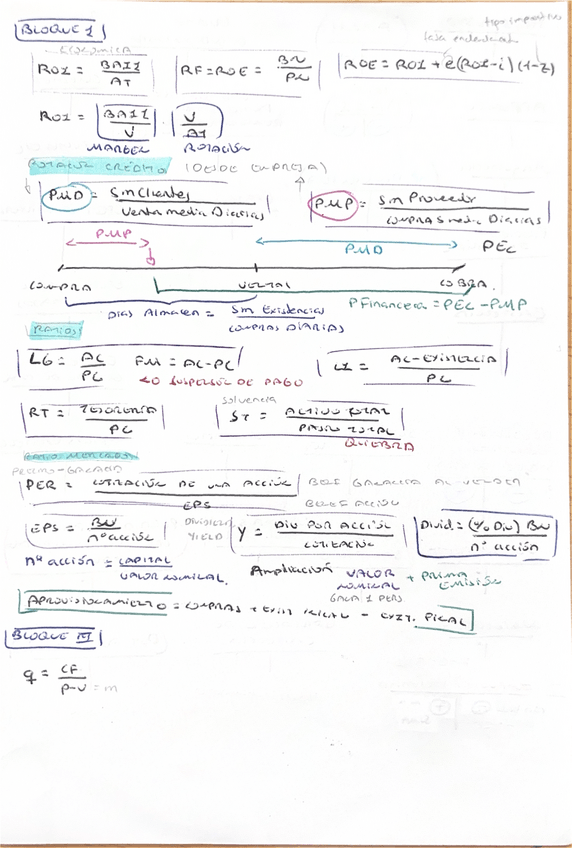 BLOQUE 1
tipo impositivo
Económica
ROI = BAII / AT
RF = ROE = BN / PN
ROE = ROI + e(ROI-i)(1-z)
ROI = BAII / V · V / AT
MARGEN ROTACIÓN
ROTACIÓN CRÉDITO (DESDE EMPRESA)
PMD = Sm Clientes / Venta media Diarias
PMP = Sm Proveedor / compras media Diarias
PMP
PMD PEC
COMPRA VENTA COBRA
PFinanciera = PEC - PMP
DIAS Almacen = Sm Existencias / COMPRAS DIARIAS
RATIOS
LG = AC / PC FM = AC-PC
LI = AC-EXISTENCIA / PC
<0 SUSPENSIÓN DE PAGO
RT = TESORERÍA / PC
Solvencia
ST = ACTIVO TOTAL / PASIVO TOTAL
QUIEBRA
RATIO MERCADOS
PRECIO-GANANCIA
PER = COTIZACIÓN DE UNA ACCIÓN / EPS
BENEF ACCIÓN
EPS = BN / nº acción
DIVIDEND YIELD
Y = DIV POR ACCIÓN / COTIZACIÓN
Divid. = (% Div) BN / nº acción
nº acción = CAPITAL / VALOR NOMINAL
Ampliación VALOR NOMINAL + PRIMA EMISIÓN
APROVISIONAMIENTO = COMPRAS + EXIST. INICIAL - EXIST. FINAL
BLOQUE III
q = CF / P-V = m